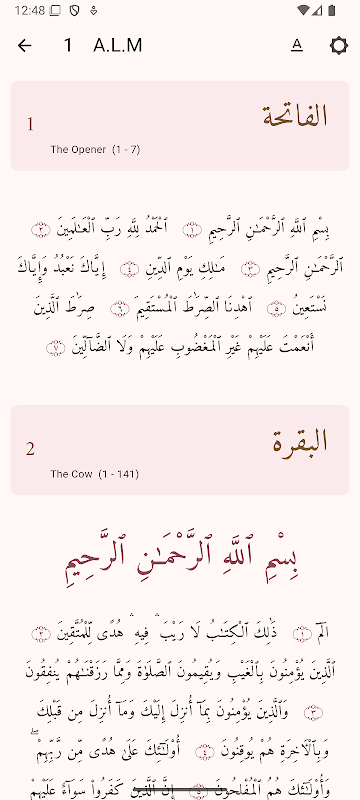 12:48
1 A.L.M A
الفاتحة
1
The Opener (1 - 7)
بِسْمِ ٱللَّهِ ٱلرَّحْمَـٰنِ ٱلرَّحِيمِ ١ ٱلْحَمْدُ لِلَّهِ رَبِّ ٱلْعَـٰلَمِينَ ٢
ٱلرَّحْمَـٰنِ ٱلرَّحِيمِ ٣ مَـٰلِكِ يَوْمِ ٱلدِّينِ ٤ إِيَّاكَ نَعْبُدُ وَإِيَّاكَ
نَسْتَعِينُ ٥ ٱهْدِنَا ٱلصِّرَٰطَ ٱلْمُسْتَقِيمَ ٦ صِرَٰطَ ٱلَّذِينَ
أَنْعَمْتَ عَلَيْهِمْ غَيْرِ ٱلْمَغْضُوبِ عَلَيْهِمْ وَلَا ٱلضَّآلِّينَ ٧
البقرة
2
The Cow (1 - 141)
بِسْمِ ٱللَّهِ ٱلرَّحْمَـٰنِ ٱلرَّحِيمِ
الٓمٓ ١ ذَٰلِكَ ٱلْكِتَـٰبُ لَا رَيْبَ ۛ فِيهِ ۛ هُدًى لِّلْمُتَّقِينَ ٢
ٱلَّذِينَ يُؤْمِنُونَ بِٱلْغَيْبِ وَيُقِيمُونَ ٱلصَّلَوٰةَ وَمِمَّا رَزَقْنَـٰهُمْ يُنفِقُونَ
٣ وَٱلَّذِينَ يُؤْمِنُونَ بِمَآ أُنزِلَ إِلَيْكَ وَمَآ أُنزِلَ مِن قَبْلِكَ
وَبِٱلْـَٔاخِرَةِ هُمْ يُوقِنُونَ ٤ أُو۟لَـٰٓئِكَ عَلَىٰ هُدًى مِّن رَّبِّهِمْ ۖ
وَأُو۟لَـٰٓئِكَ هُمُ ٱلْمُفْلِحُونَ ٥ إِنَّ ٱلَّذِينَ كَفَرُوا۟ سَوَآءٌ عَلَيْهِمْ